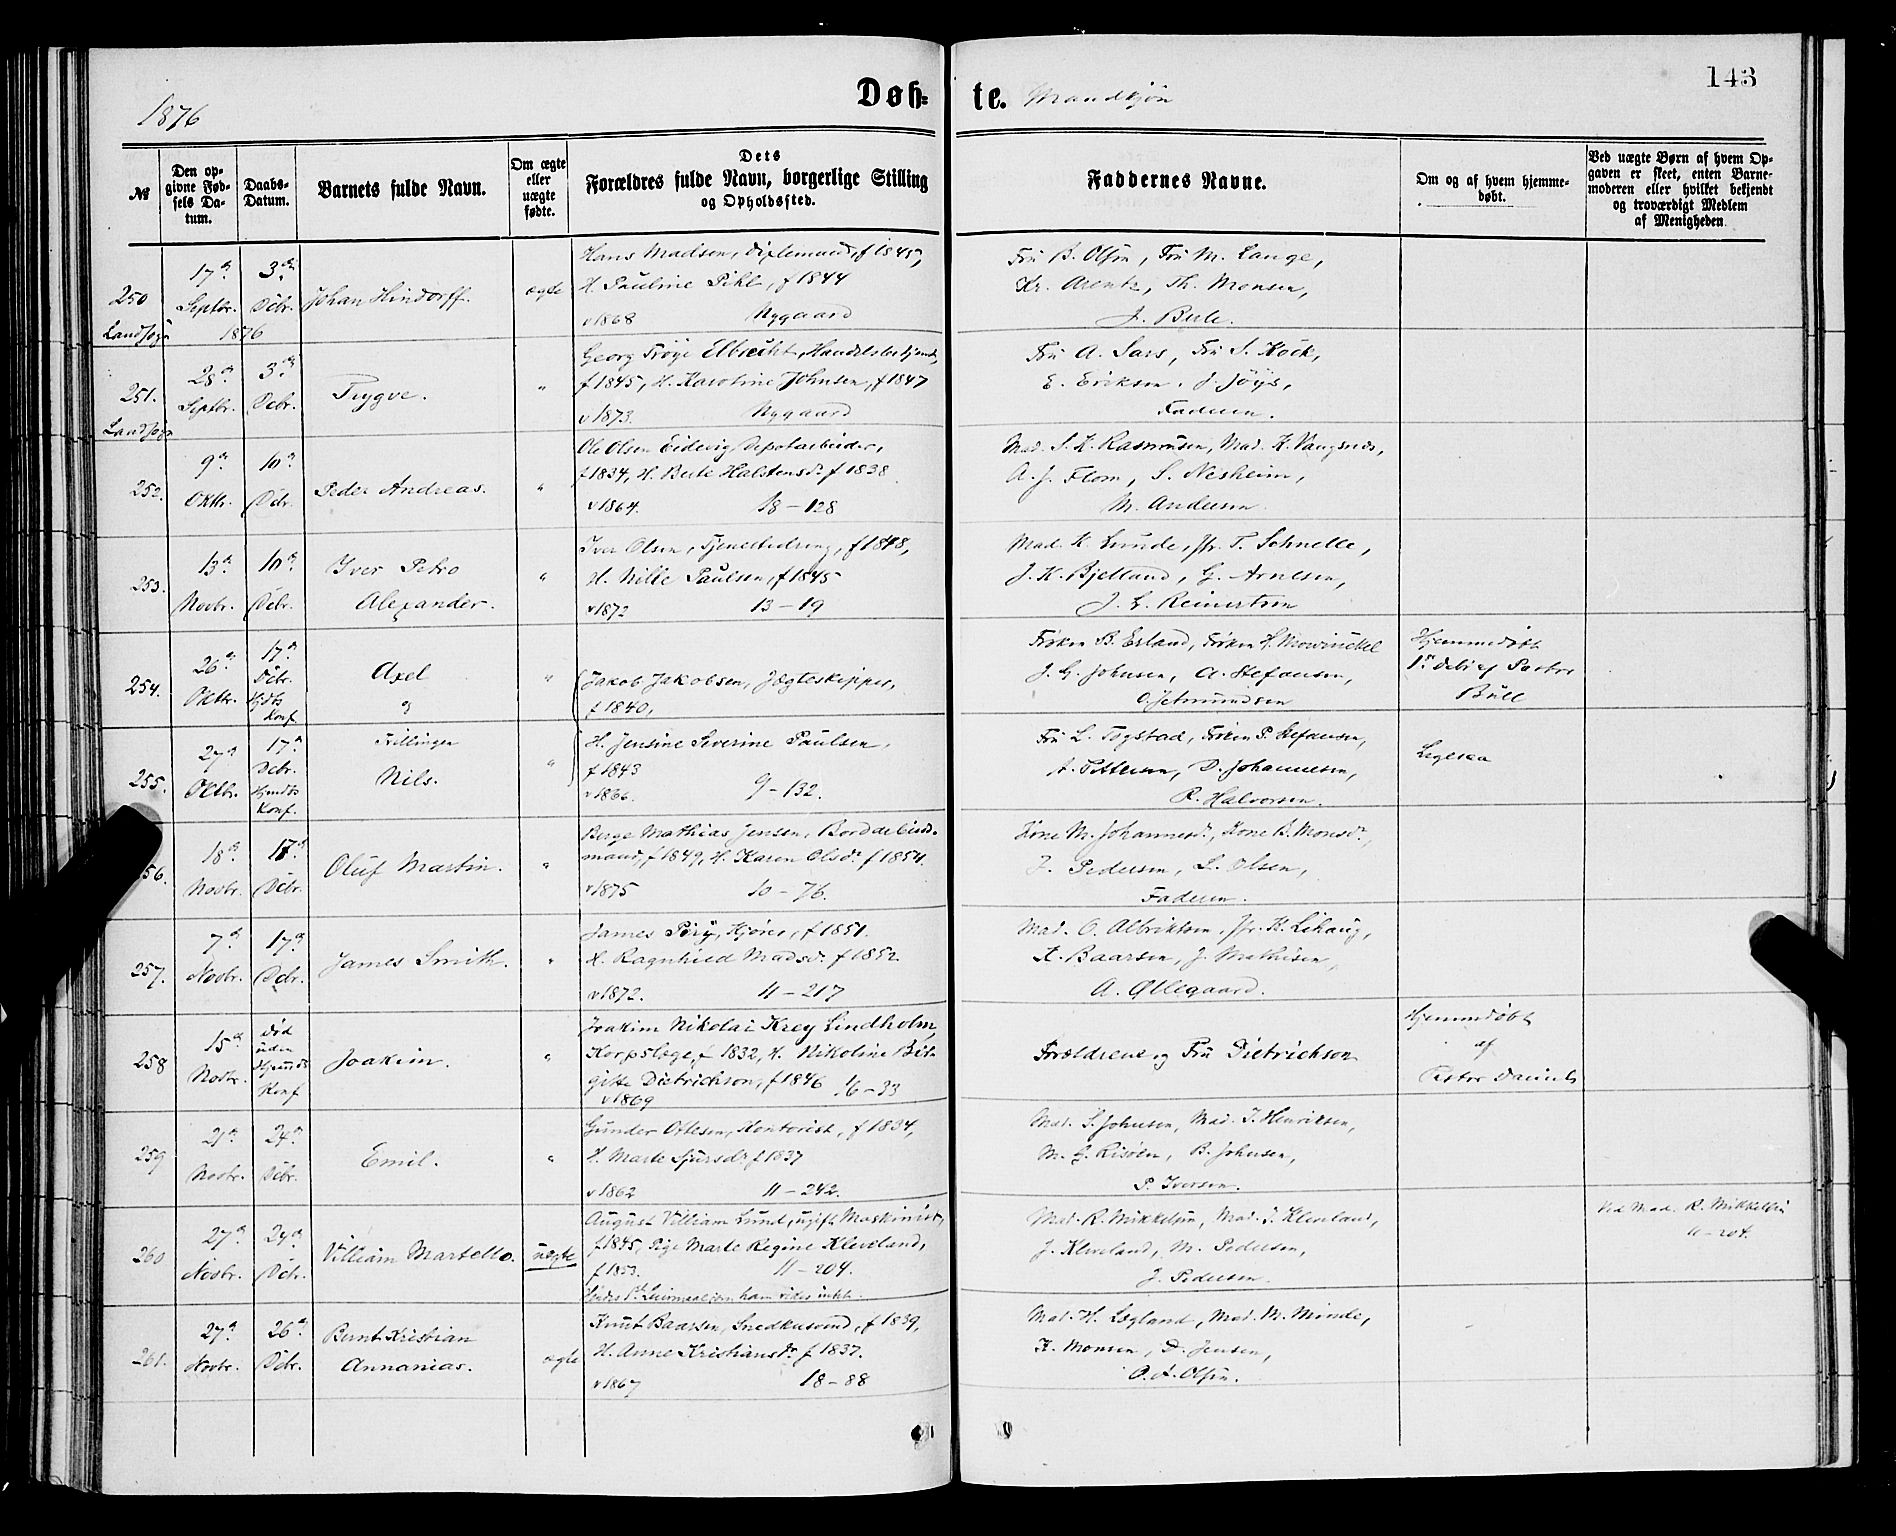 1876
Døb-
te. Mandkjøn
143
№
Den op-
givne Fød-
sels Da-
tum.
Daabs-
Datum.
Barnets fulde Navn.
Om ægte
eller
uægte
fødte.
Dets
Forældres fulde Navn, borgerlige Stilling
og Opholdssted.
Faddernes Navne.
Om og af hvem hjemme-
døbt.
Ved uægte Børn af hvem Op-
gaven er skeet, enten Barne-
moderen eller hvilket bekjendt
og troværdigt Medlem
af Menigheden.
250
Landsogn
17de
Septbr.
1876
3die
Dcbr.
Johan Hindorff.
ægte
Hans Madsen, f 1845,
H. Pauline Pihl, f 1844
v 1868 Nygaard
Fru B. Olsen, Fru M. Lange,
Kr. Arentz, Th. Monsen,
251.
Landsogn
28de
Septbr.
3die
Dcbr.
Trygve.
"
Georg Frøye Elbrecht,
f 1845, H. Karoline Johnsen, f 1847
v 1873. Nygaard
Fru A. Sars, Fru S. Kock,
E. Eriksen, J. Jöys,
Faderen.
252.
9de
Oktbr.
10de
Dcbr.
Peder Andreas.
"
Ole Olsen Eidevig, Depotarbeider,
f 1834, H. Berte Halstensdr f 1838
v 1864. 18 – 128
Mad. S. K. Rasmusen, Mad. K. Vangsnes,
A. J. Flom, S. Nesheim,
M. Andersen
253.
13de
Novbr.
10de
Dcbr.
Yver Petro
Alexander.
"
Iver Olsen, f 1848,
H. Nille Paulsen, f 1845
v 1872 13 – 19
Mad. K. Lunde, Jfr. T. Schnelle,
J. K. Bjelland, G. Arnesen,
J. G. Reinertsen
254.
26de
Oktbr.
17de
Dcbr.
Hjdb
Konf
Axel
og
"
Jakob Jakobsen, Jægteskipper,
f 1840,
Frøken B. Erland, Frøken H. Mowinckel
J. G. Johnsen, A. Stefansen,
Hjemmedøbt
1ste Dcbr af Pastor
Bull
255.
27de
Oktbr.
17de
Dcbr.
Hjmdb
Konf.
Tvillinger
Nils.
"
H. Jensine Severine Paulsen,
f 1843
v 1866. 9 – 132.
Fru L. Togstad, Frøken P. Stefansen,
A. Pettersen, D. Johannesen,
R. Halvorsen.
Ligesaa
256.
18de
Novbr.
17de
Dcbr.
Oluf Martin.
"
Berge Mathias Jensen, Bordarbeids-
mand, f 1849, H. Karen Olsdr f 1854.
v 1875 10 – 76.
Kone M. Johannesdr, Kone B. Monsdr,
Pedersen, L. Olsen,
Faderen.
257.
7de
Novbr.
17de
Dcbr.
James Smith.
"
James Pery, Kjører, f 1851.
H. Ragnhild Madsdr f 1852
v 1872. 11 – 217
Mad. O. Albriktsen, Jfr. K. Lihaug,
A. Baarsen, J. Mathisen,
A. Øllegaard.
258
15de
Novbr.
Død
uden
Hjmdb
Konf
Joakim.
"
Joakim Nikolai Krey Lindholm,
Korpslæge, f 1832, H. Nikoline Bir-
gitte Dietrichson, f 1846 16 – 33
v 1869
Forældrene og Fru Dietrichson
Hjemmedøbt
af
Pastor
259
21de
Novbr.
24de
Dcbr.
Emil.
"
Gunder Ottesen, Kontorist, f 1834,
H. Marte Sjursdr f 1837
v 1862 11 – 242.
Mad. S. Johnsen, Mad. I. Henriksen,
M. G. Risøen, B. Johnsen,
P. Iversen.
260
27de
Novbr.
24de
Dcbr.
Villiam Martello.
uægte
August Villiam Lund, ugift Maskinist,
f 1845, Pige Marte Regine Kleveland,
f 1853. 11 – 204.
Hendes 1ste Leiermaal,
Mad. R. Mikkelsen, Mad. J. Kleveland,
J. Kleveland, M. Pedersen,
J. Pedersen.
Ved Mad. R. Mikkelsen
11 – 204.
261.
27de
Novbr.
26de
Dcbr.
Bernt Kristian
Annanias.
ægte
Knut Baarsen, Snedkersvend, f 1839,
H. Anne Kristiansdr f 1837.
v 1867 18 – 88
Mad. H. Legland, Mad. M. Minde,
K. Monsen, D. Jensen,
O. A. Olsen.